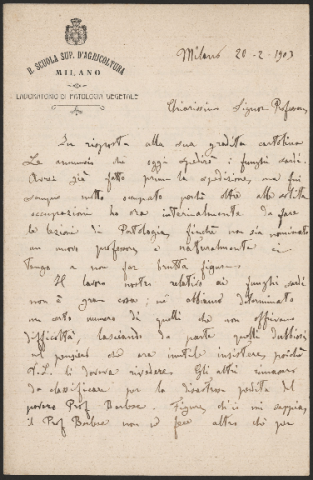 R. SCUOLA SUP. D'AGRICOLTURA
MILANO
LABORATORIO DI PATOLOGIA VEGETALE
Milano 20-2-1903
Chiarissimo Signor Professore,
In risposta alla sua gradita cartolina
Le annuncio che oggi spedirò i funghi sardi.
Avrei già fatto prima la spedizione, ma fui
sempre molto occupato perchè oltre alle solite
occupazioni ho ora interinalmente da fare
le lezioni di Patologia, finchè non sia nominato
un nuovo professore, e naturalmente ci
tengo a non far brutta figura.
Il lavoro nostro relativo ai funghi sardi
non è gran cosa; ne abbiamo determinato
un certo numero di quelli che non offrivano
difficoltà, lasciando da parte quelli dubbiosi
nel pensiero che era inutile insistere, poichè
Ella li doveva rivedere. Gli altri rimasero
da classificare per la disastrosa perdita del
povero Prof. Berlese. Figure, ch'io mi sappia,
il Prof Berlese non ed fece altro che per